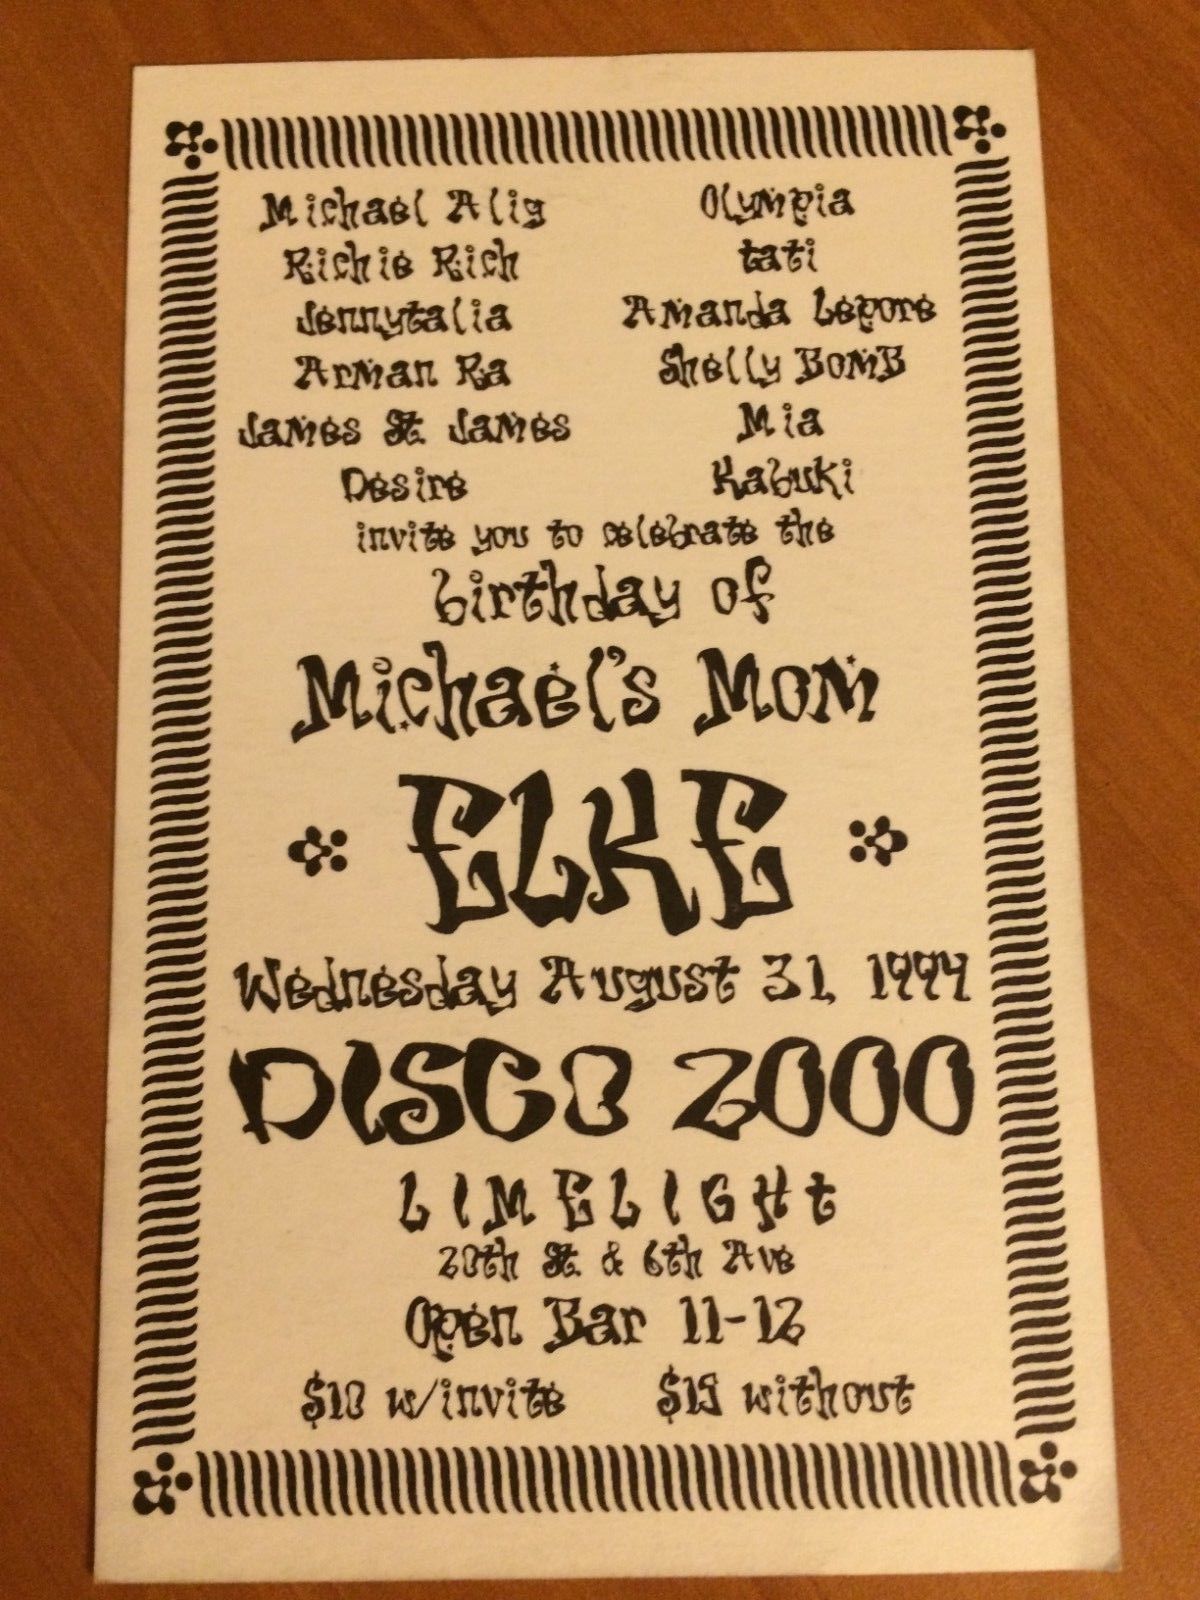 Michael Alig
Richie Rich
Jennytalia
Arman Ra
James St. James
Desire
Olympia
tati
Amanda Lepore
Shelly BomB
Mia
Kabuki
invite you to celebrate the
birthday of
Michael's Mom
ELKE
Wednesday August 31, 1994
DISCO 2000
LIMELIGHt
20th St. & 6th Ave
Open Bar 11-12
$10 w/invite $15 without